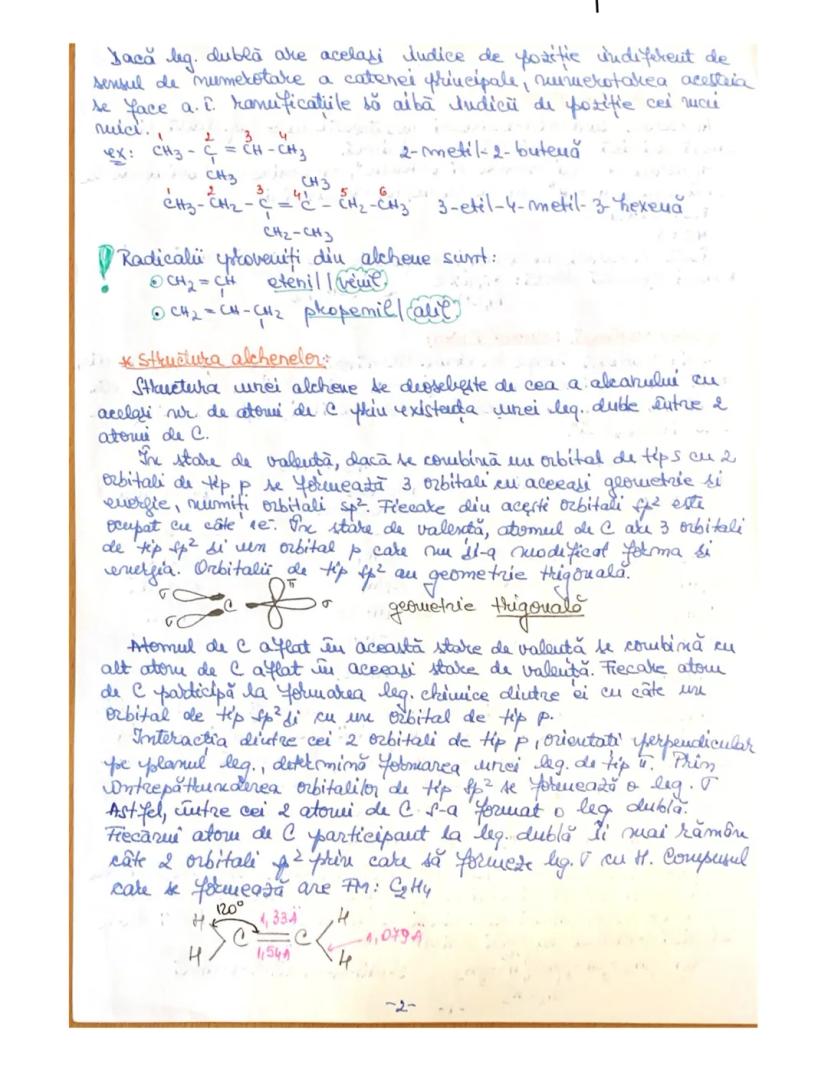 Dacă leg. dublă are același indice de poziție indiferent de
sensul de numerotare a catenei principale, numerotarea acesteia
se face a. î. ramificațiile să aibă indicii de poziție cei mai
mici.
ex: CH3 - C = CH - CH3 2-metil-2-butenă
1 2 3 4
CH3
CH3
1 2 3 4 5 6
CH3 - CH2 - C = C - CH2 - CH3 3-etil-4-metil-3-hexenă
CH2-CH3
! Radicalii proveniți din alchene sunt:
CH2 = CH etenil / vinil
CH2 = CH - CH2 propenil / alil
* Structura alchenelor:
Structura unei alchene se deosebește de cea a alcanului cu
același nr. de atomi de C prin existența unei leg. duble între 2
atomi de C.
În stare de valență, dacă se combină un orbital de tip s cu 2
orbitali de tip p se formează 3 orbitali cu aceeași geometrie și
energie, numiți orbitali sp². Fiecare din acești orbitali sp² este
ocupat cu câte 1e⁻. În stare de valență, atomul de C are 3 orbitali
de tip sp² și un orbital p care nu și-a modificat forma și
energia. Orbitalii de tip sp² au geometrie trigonală.
σ σ C π σ geometrie trigonală
Atomul de C aflat în această stare de valență se combină cu
alt atom de C aflat în aceeași stare de valență. Fiecare atom
de C participă la formarea leg. chimice dintre ei cu câte un
orbital de tip sp² și cu un orbital de tip p.
Interacția dintre cei 2 orbitali de tip p, orientați perpendicular
pe planul leg., determină formarea unei leg. de tip π. Prin
întrepătrunderea orbitalilor de tip sp² se formează o leg. σ
Astfel, între cei 2 atomi de C s-a format o leg dublă.
Fiecărui atom de C participant la leg. dublă îi mai rămân
câte 2 orbitali p² prin care să formeze leg. σ cu H. Compusul
care se formează are FM: C2H4
120°
H 1,33Å H
C = C 1,079Å
H 1,54Å H
-2-